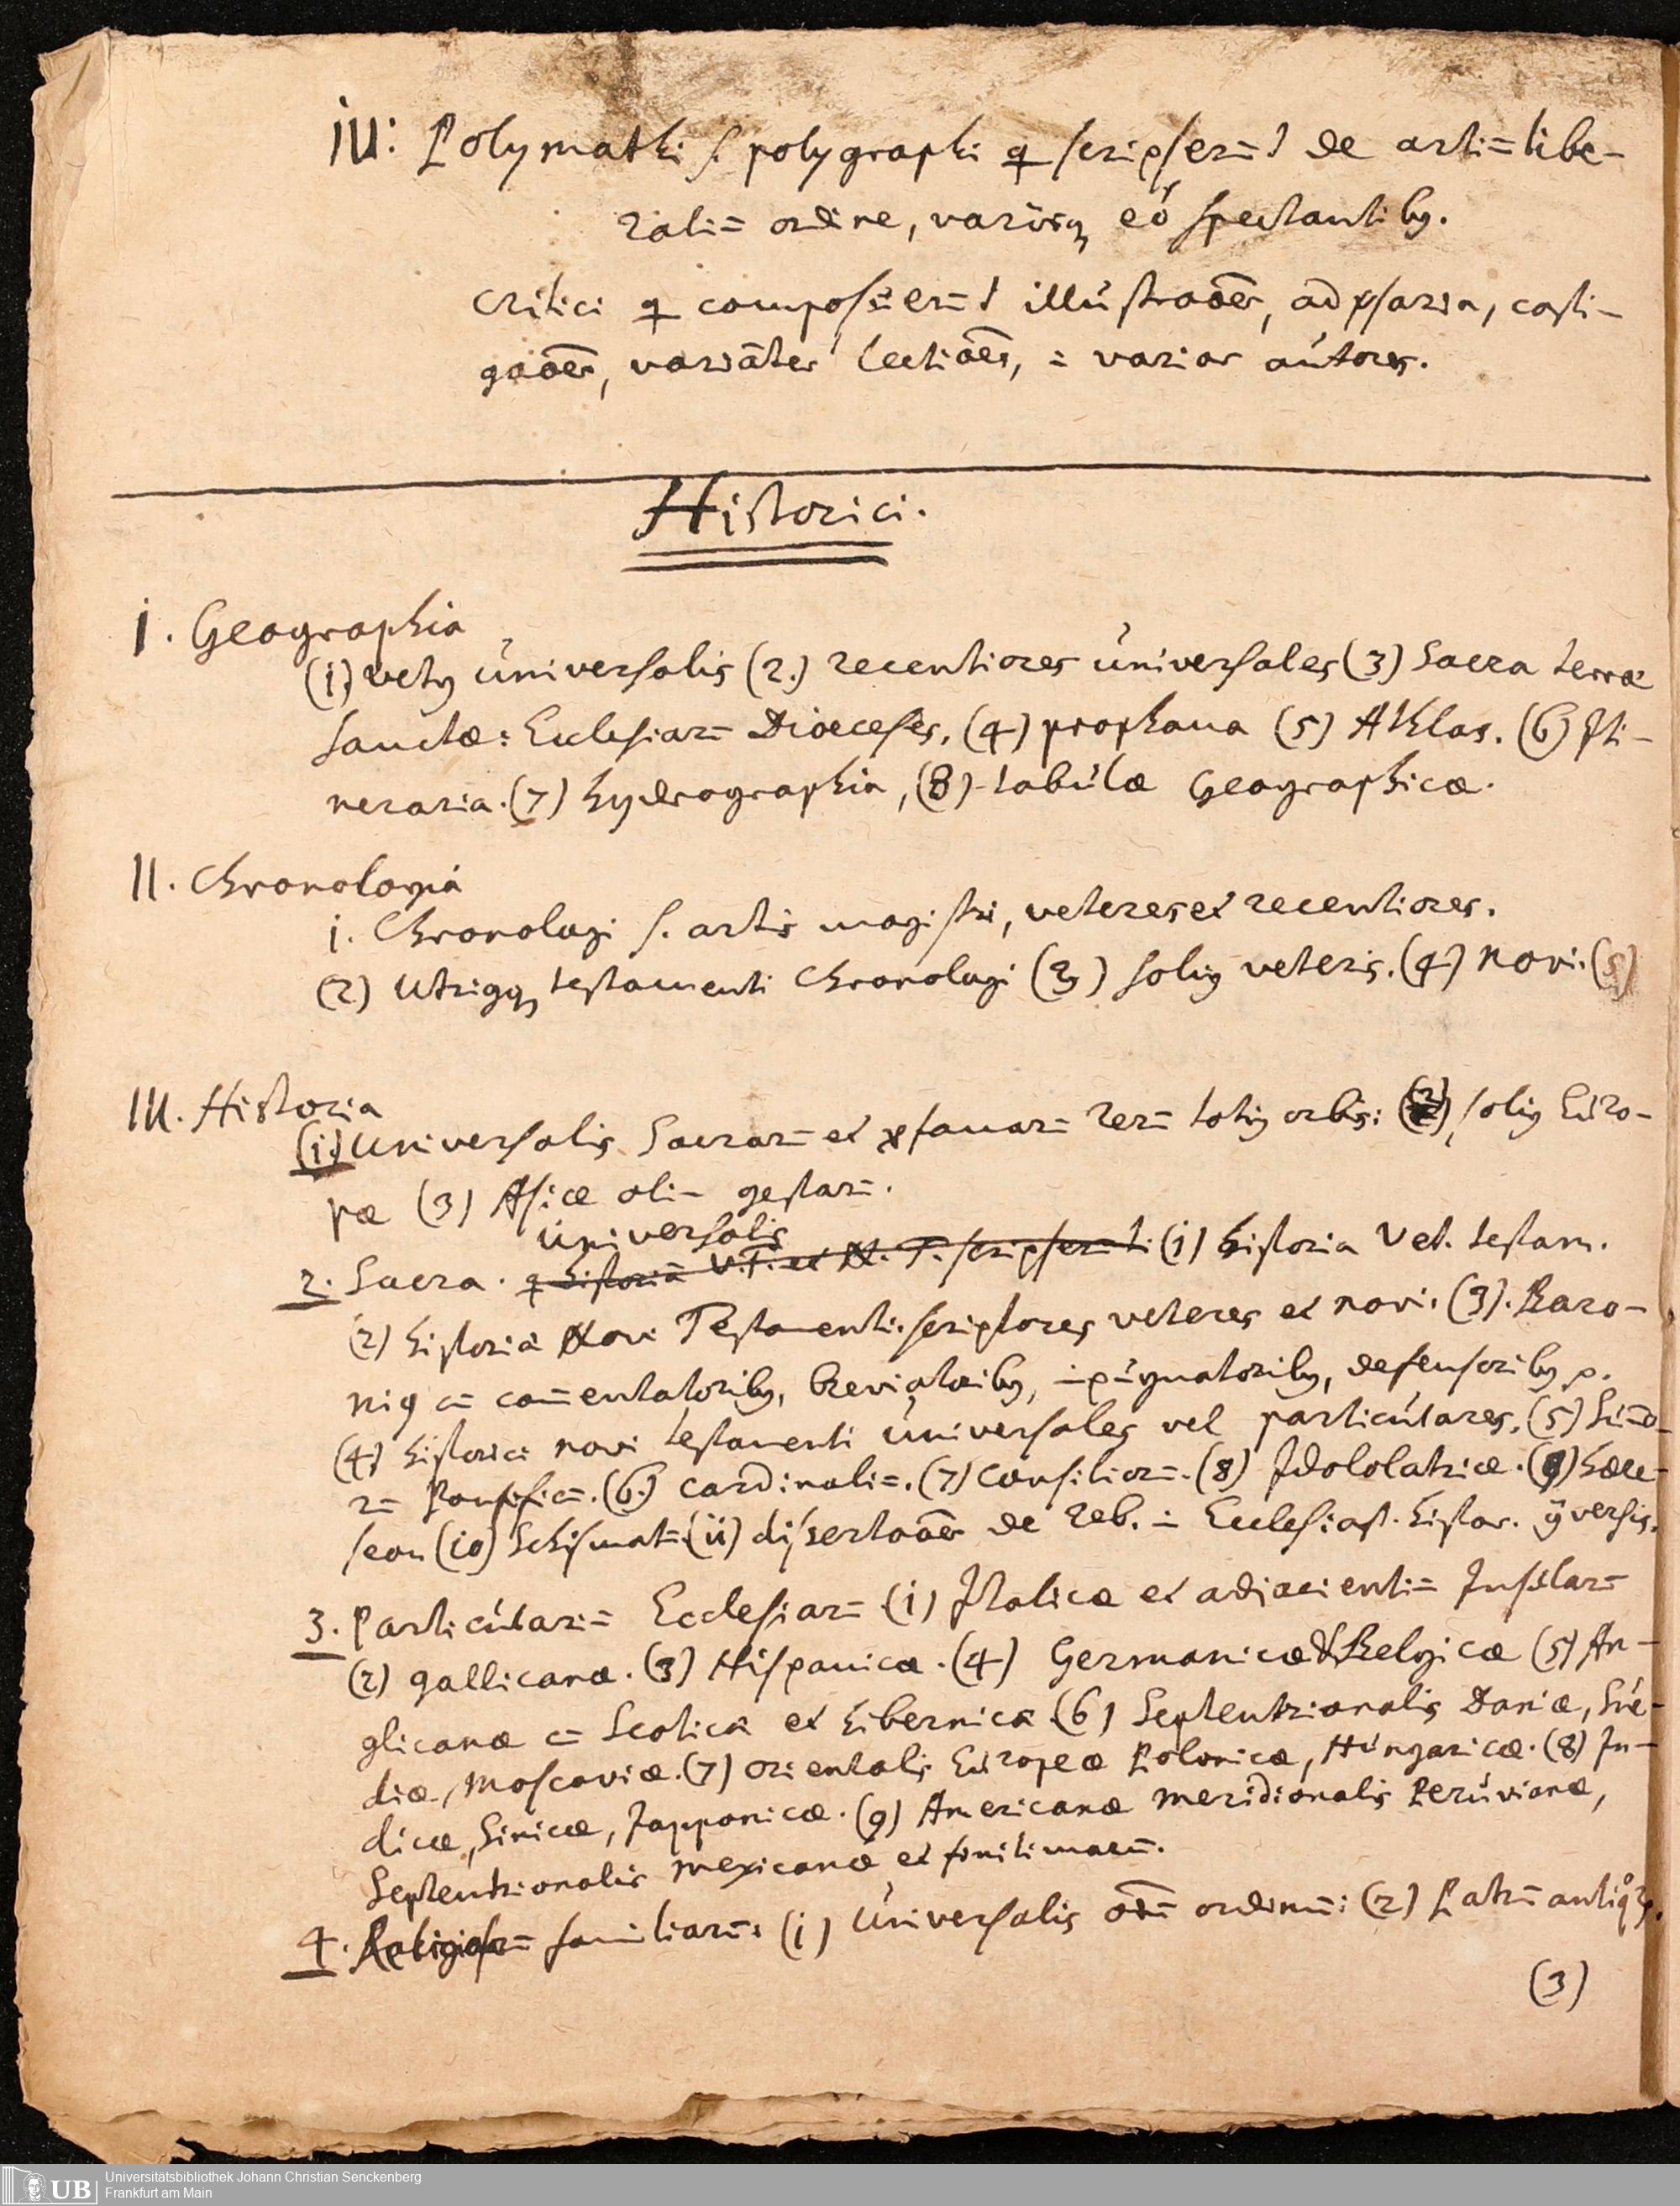 iv: Polymathi s. polygraphi q scripser=t de arti= libe-
rali= ordine, variisq, eò spectantibq.
Critici q composuer=t illústraōēs, adversaria, casti-
gaōēs, variātes lectiōēs, = varios aútores.
Historici.
I. Geographia
(i.) vetq úniversalis (2.) recentiores úniversales (3) Sacra terræ
Sanctæ: Ecclesiar= Dioeceses, (4) prophana (5) Athlas. (6) Iti-
neraria. (7) hydrographia, (8) tabúlæ Geographicæ.
II. Chronologia
i. Chronologi s. artis magistri, veteres et recentiores.
(2) Utriqq, testamenti Chronologi (3) soliq veteris. (4) novi. (5)
III. Historia
(i.) Universalis Sacrar= et pfanar= rer= totiq orbis: (2) soliq Eúro-
pæ (3) Asiæ oli= gestar=.
úniversalis
2. Sacra. q historiā V.T. et N. T. scripser=t: (i) historia Vet. testam.
(2) historia Novi Testamenti. scriptores veteres et novi. (3). Baro-
niq c= co=entatoribq, breviatoribq, =púgnatoribq, defensoribq p.
(4) historici novi testamenti úniversales vel particúlares. (5)
r= Pontific=. (6.) Cardinali=. (7) Consilior=. (8) Idololatriæ. (9) hære-
seon (io) Schismat= (ii) dissertaōēs de reb. = Ecclesiast. histor. ÿversis.
3. Particúlari= Ecclesiar= (i) Italicæ et adiacienti= Insúlar=
(2) gallicanæ. (3) Hispanicæ. (4) Germanicæ & Belgicæ (5) An-
glicanæ c= Scotica et hibernica (6) Septentrionalis Daniæ, Súe-
diæ, Moscoviæ. (7) orientalis Eúropeæ Polonicæ, Húngaricæ. (8) In-
dicæ, Sinicæ, Japponicæ. (9) Americanæ meridionalis Perúvianæ,
Septentrionalis mexicanæ et finitimarú=.
4. Religiosar= familiar=: (i) Úniversalis ordinu=: (2) Patr= antiq
(3)
UB Universitätsbibliothek Johann Christian Senckenberg
Frankfurt am Main